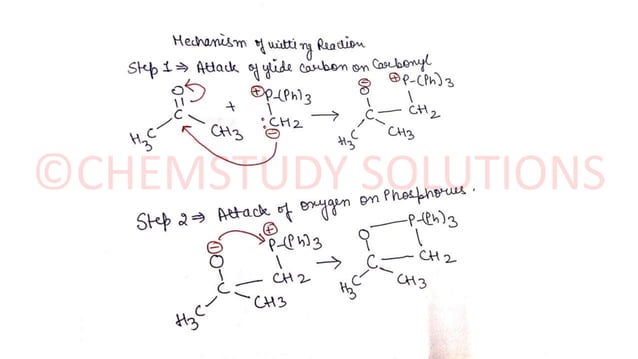 Mechanism of witting Reaction
Step 1 ⇒ Attack of ylide carbon on Carbonyl
O
C
H3C
CH3
+
⊕P-(Ph)3
:CH2
⊖
→
⊖
O
⊕P-(Ph)3
C
CH2
H3C
CH3
©CHEMSTUDY SOLUTIONS
Step 2 ⇒ Attack of oxygen on Phosphorus.
⊖
O
⊕
P-(Ph)3
C
CH2
H3C
CH3
→
O
P-(Ph)3
C
CH2
H3C
CH3